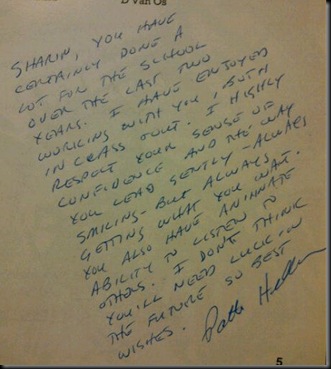 D Van Os
SHARIN, YOU HAVE
CERTAINLY DONE A
LOT FOR THE SCHOOL
OVER THE LAST TWO
YEARS. I HAVE ENJOYED
WORKING WITH YOU, BOTH
IN CLASS + OUT. I HIGHLY
RESPECT YOUR SENSE OF
CONFIDENCE AND THE WAY
YOU LEAD GENTLY - ALWAYS
SMILING - BUT ALWAYS
GETTING WHAT YOU WANT.
YOU ALSO HAVE AN INNATE
ABILITY TO LISTEN TO
OTHERS. I DON'T THINK
YOU'LL NEED LUCK IN
THE FUTURE SO BEST
WISHES.
5